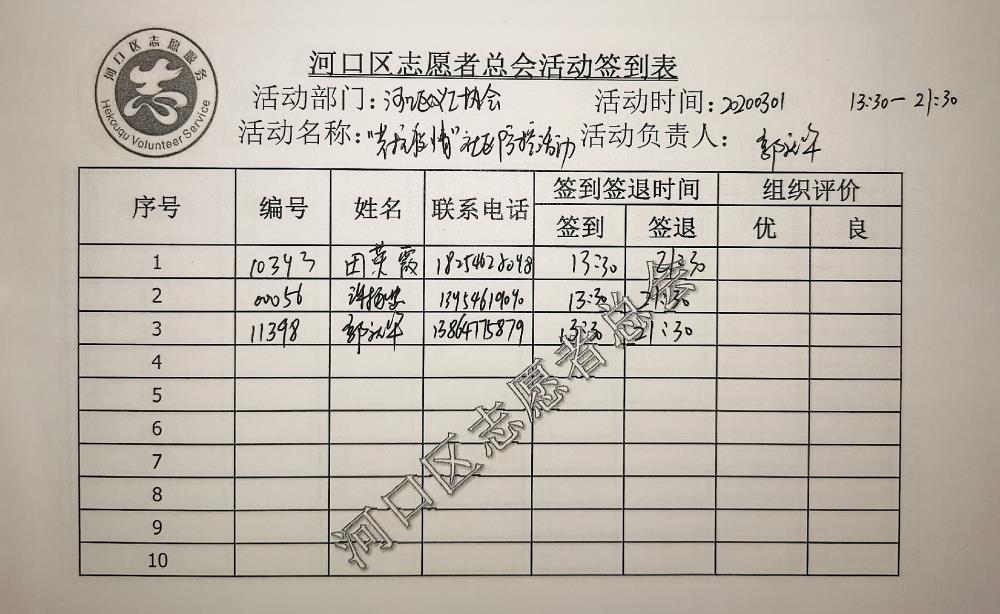 河口区志愿服务
志
Hekouqu Volunteer Service
河口区志愿者总会活动签到表
活动部门：河口区义工协会 活动时间：20200301 13:30—21:30
活动名称："抗疫情"社区防控活动 活动负责人：
序号 编号 姓名 联系电话 签到签退时间 组织评价
签到 签退 优 良
1 10343 田荣霞 18254628048 13:30 21:30
2 00056 13:30 21:30
3 11398 13864775879 13:30 21:30
4
5
6
7
8
9
10
河口区志愿者总会